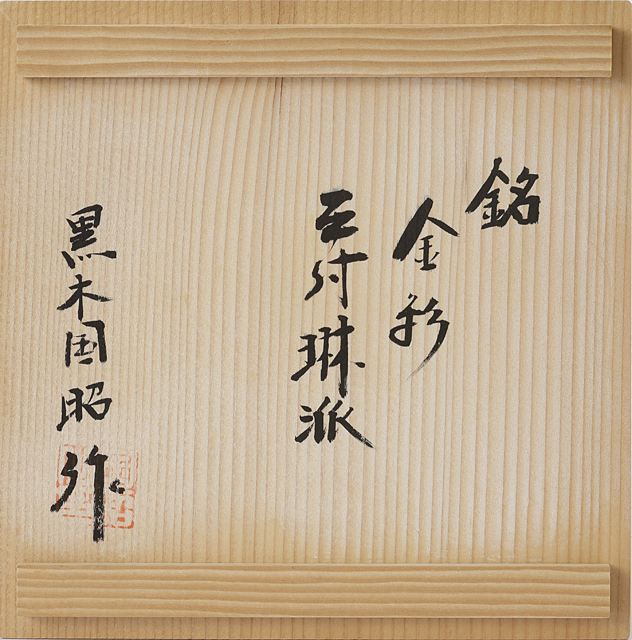 銘
金彩
玉付琳派
黒木国昭作